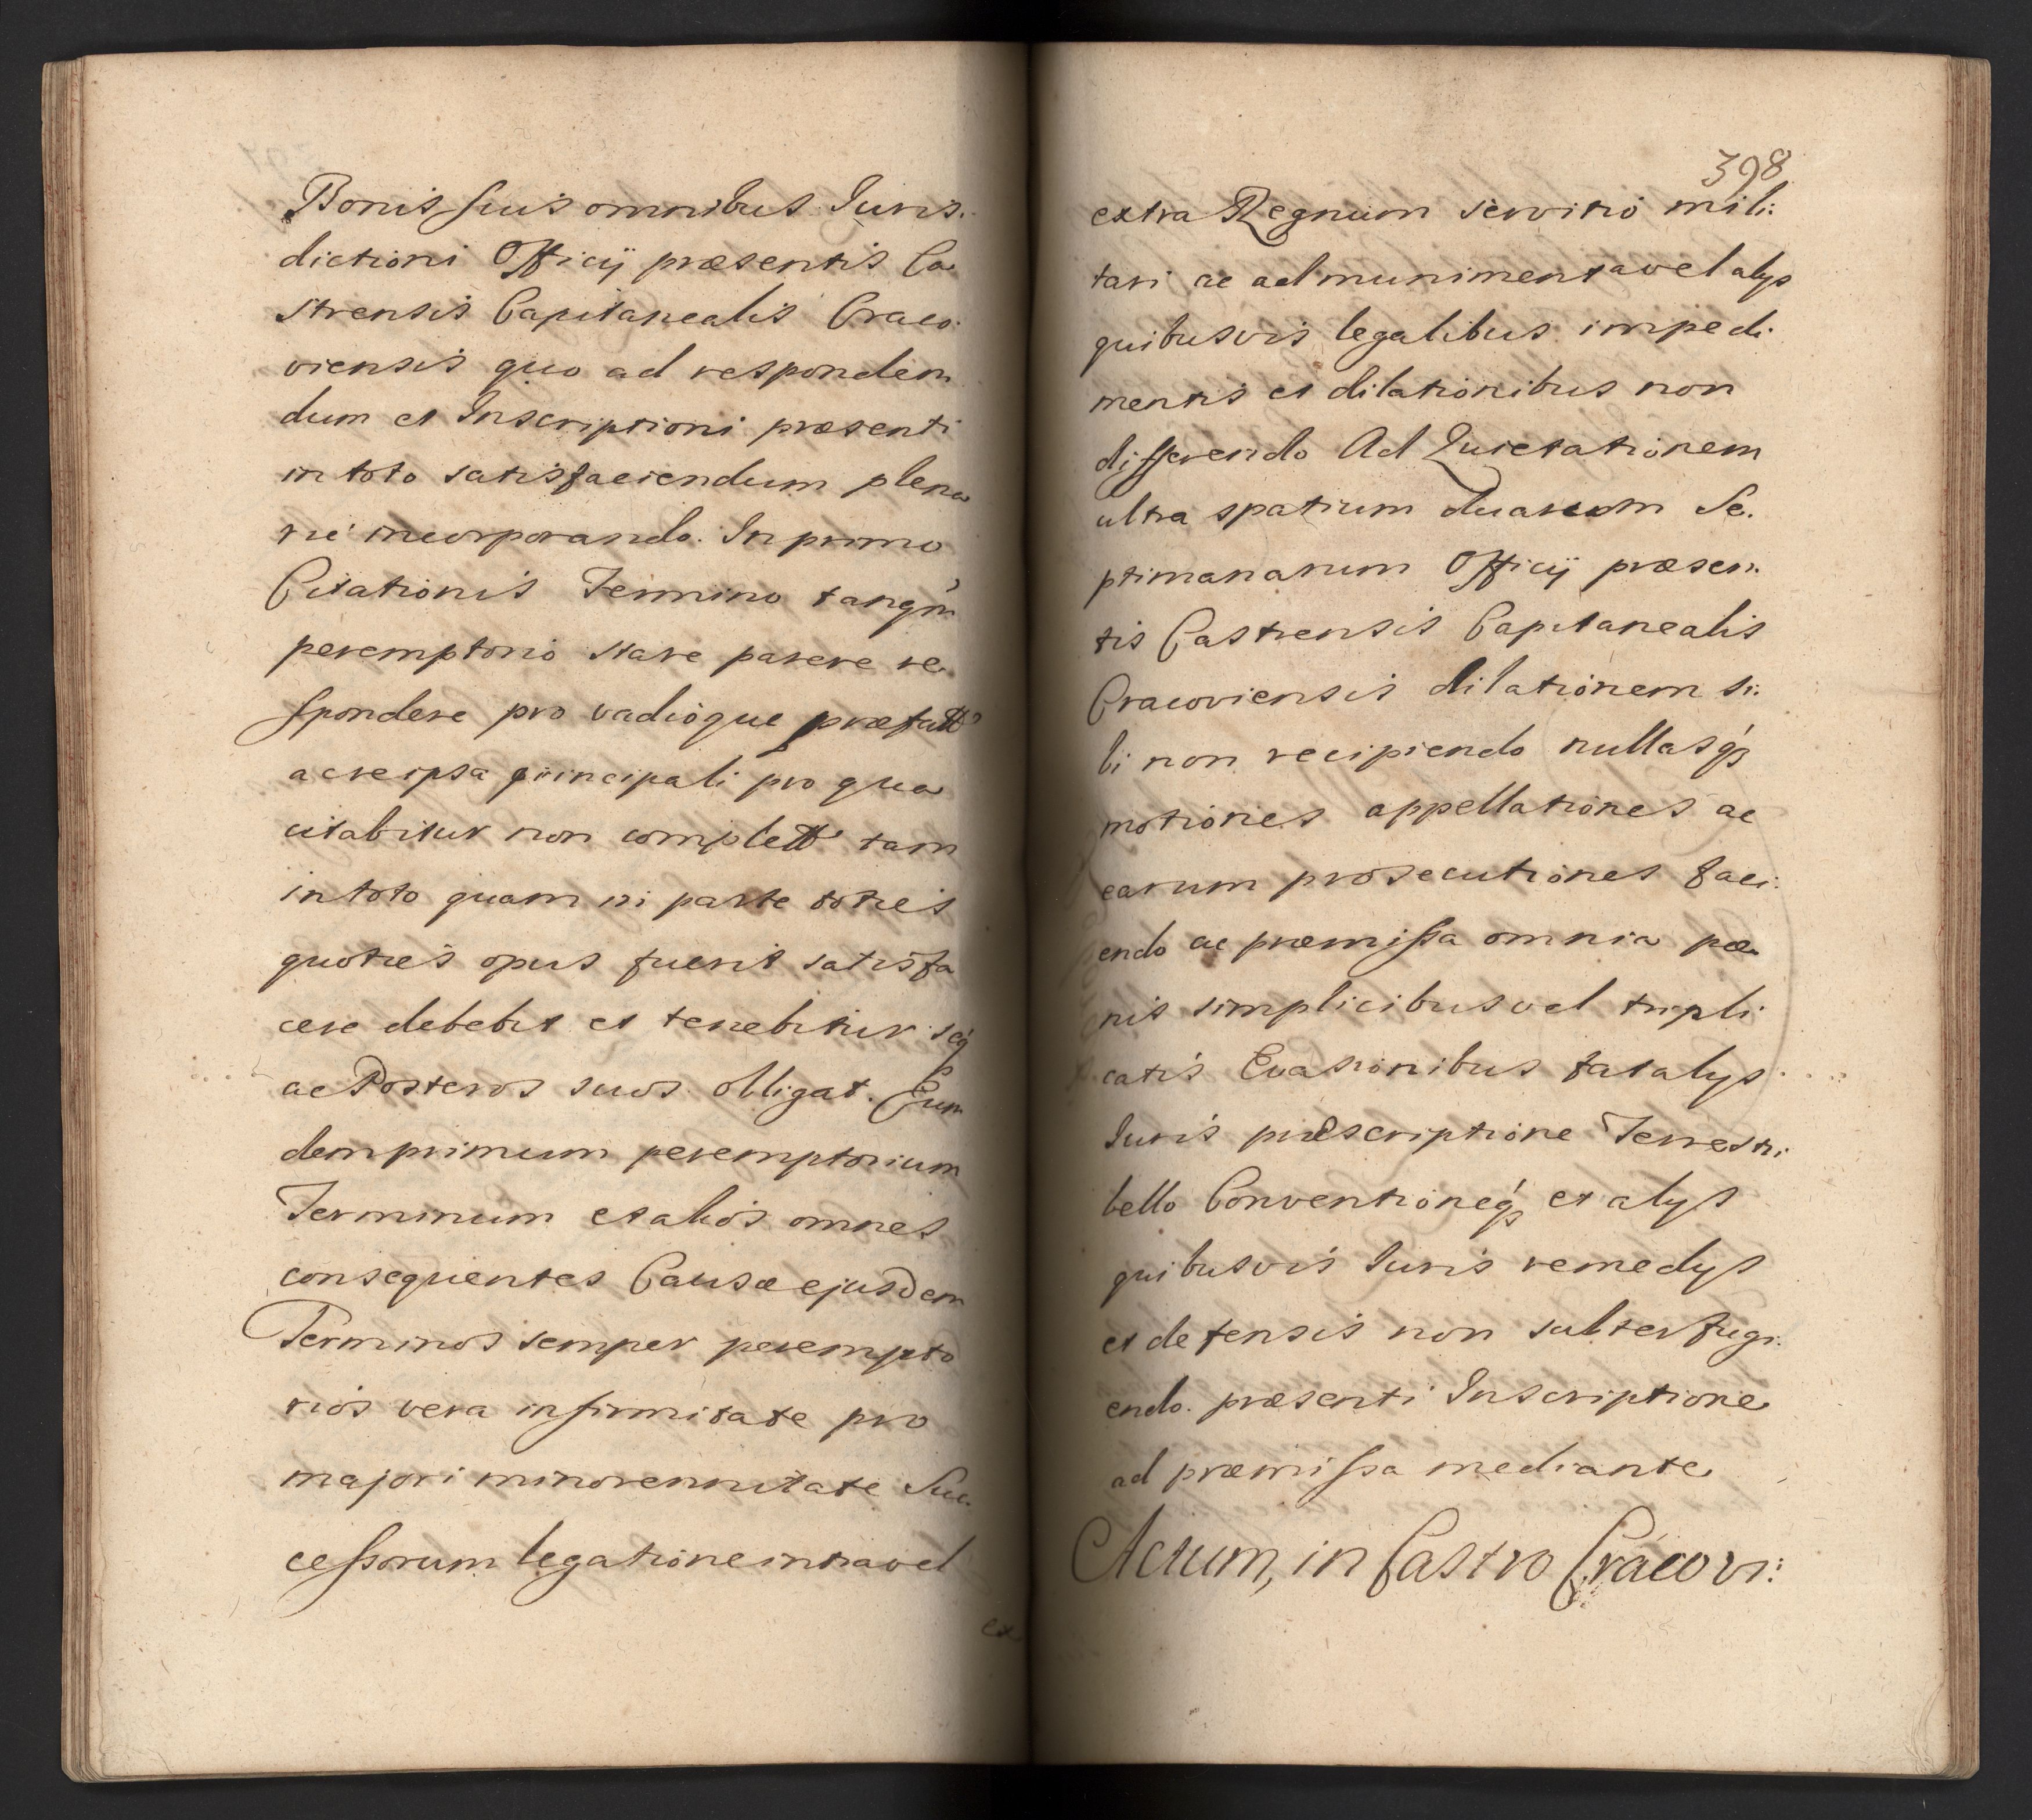 Bonis suis omnibus Juris.
dictioni Officij præsentis Ca
strensis Capitanealis Craco.
viensis quo ad responden
dum et Inscriptioni præsenti
in toto satisfaciendum plena
rie incorporando. In primo
Citationis Termino tanqm̃
peremptorio stare parere re.
spondere pro vadioque præfatt
ac re ipsa principali pro qua
citabitur non complett tam
in toto quam in parte toties
quoties opus fuerit satisfa
cere debebit et tenebitur seq́
ac Posteros suos obligat. Eun
dem primum peremptorium
Terminum et alios omnes
consequentes Causæ ejusdem
Terminos semper perempto
rios vera infirmitate pro
majori minorennitate Suc.
cessorum legatione intra vel
ex
398
extra Regnum servitio mili:
tari ac ad munimenta vel alys
quibusvis legalibus impedi.
mentis et dilationibus non
differendo Ad Quietationem
ultra spatium duarum Se.
ptimanarum Officij præsen.
tis Castrensis Capitanealis
Cracoviensis dilationem si:
bi non recipiendo nullasq́
motiones appellationes ac
earum prosecutiones faci:
endo ac præmissa omnia pæ
nis simplicibus vel tripli
catis Evasionibus fatalys
Juris præscriptione Terrestri
bello Conventioneq́ et alys
quibusvis Juris remedys
et defensis non subterfugi:
endo. præsenti Inscriptione
ad præmissa mediante
Actum, in Castro Cracovi: